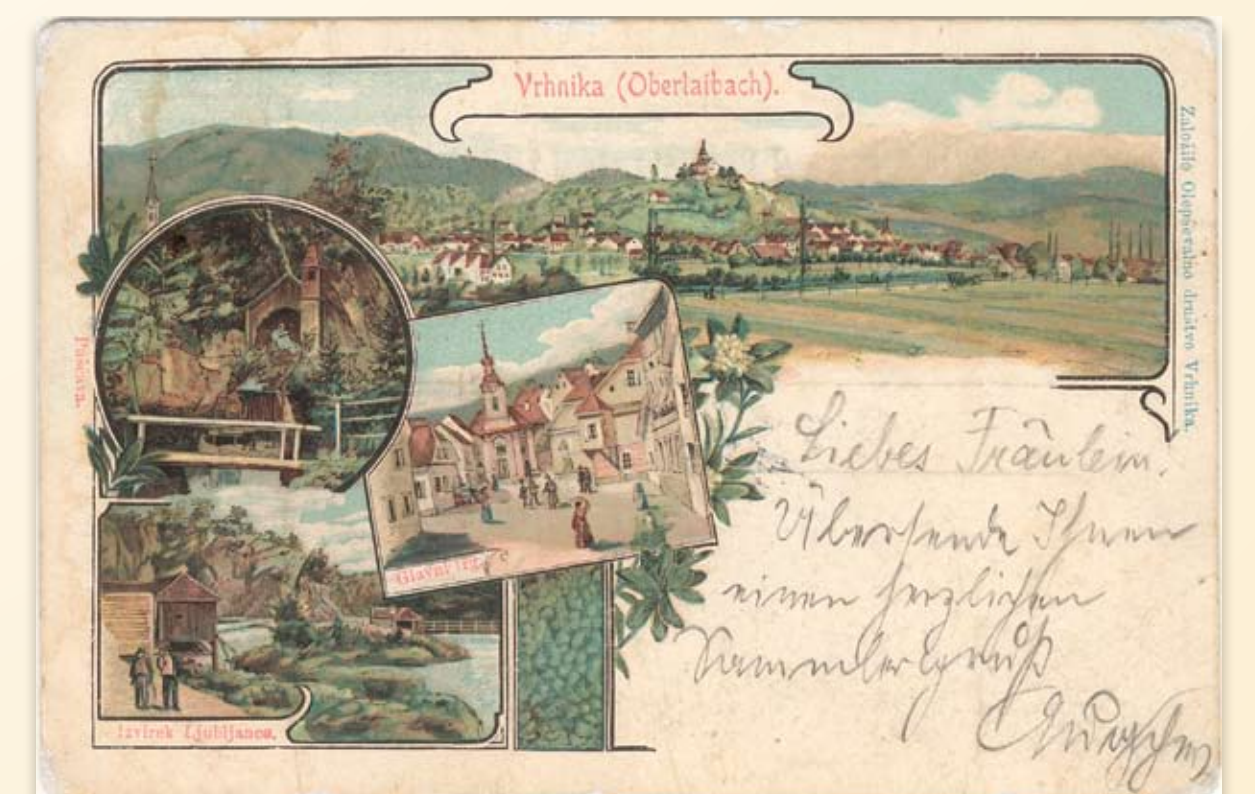 Vrhnika (Oberlaibach).
Založilo Olepševalno društvo Vrhnika.
Pūščava.
Glavni trg.
Izvirek Ljubljance.
Liebes Fräulein.
Übersende Ihnen
einen herzlichen
Sammlergruß